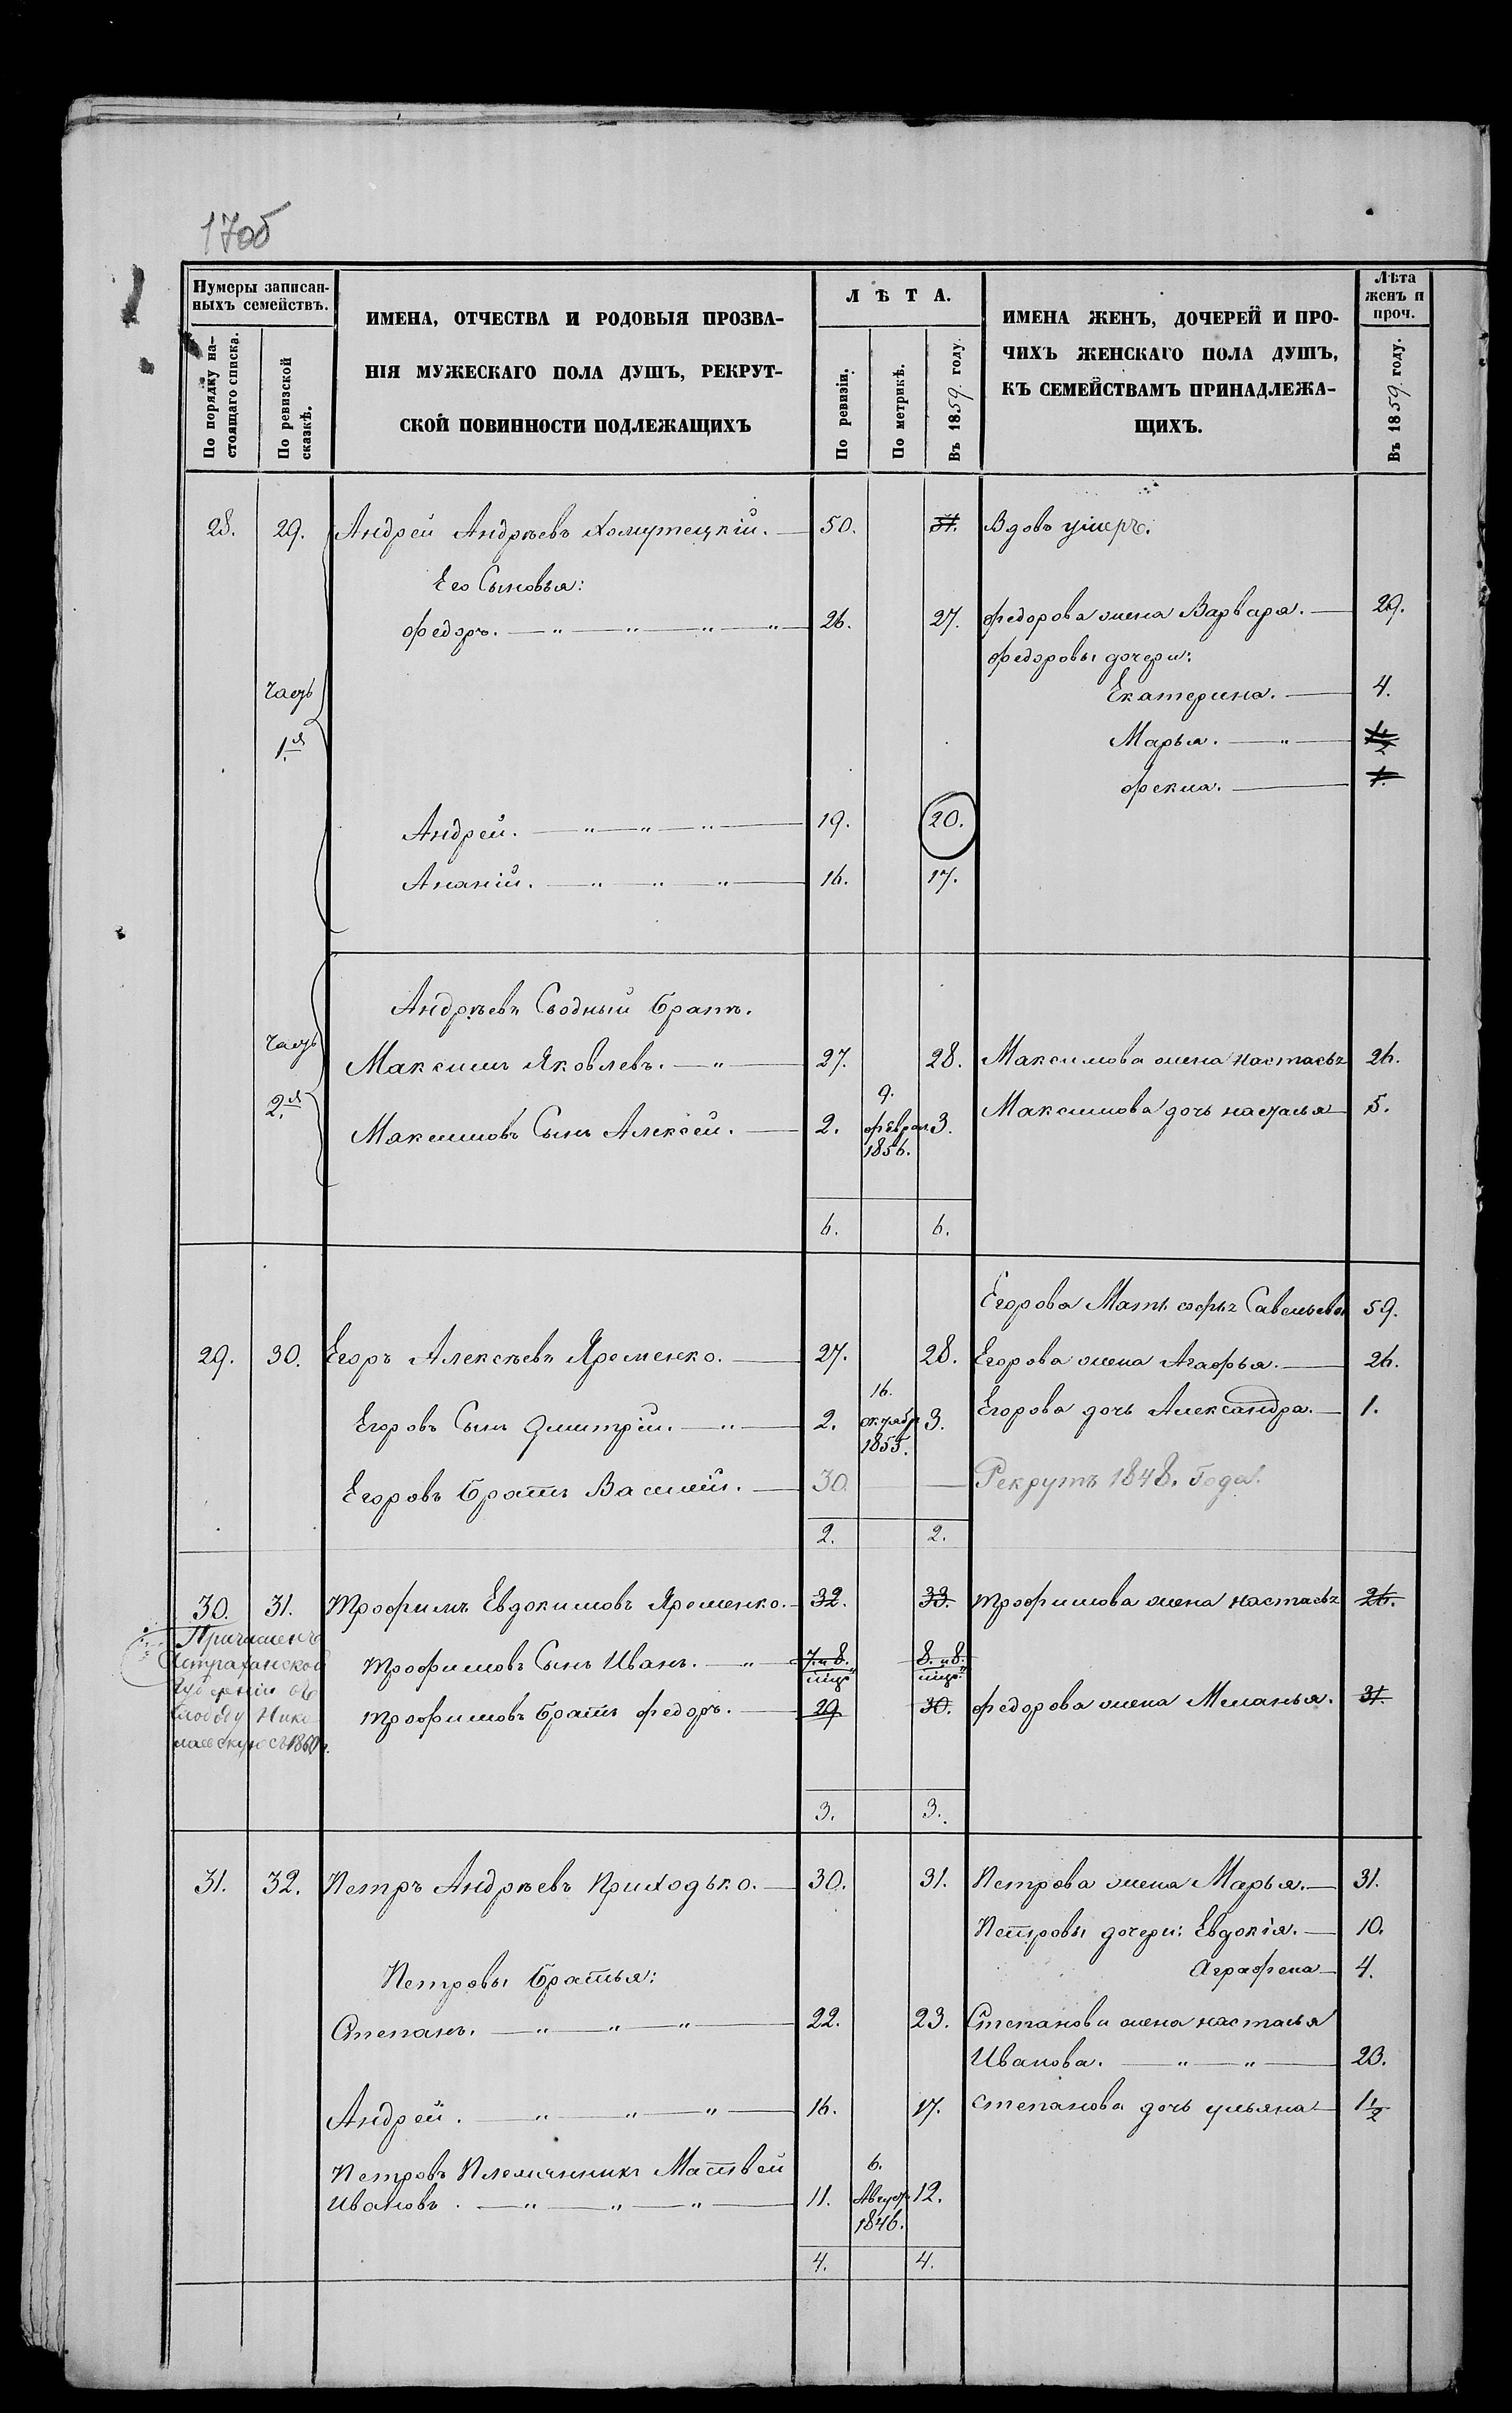 170об
Нумеры записан-
ныхъ семействъ.
По порядку на-
стоящаго списка.
По ревизской
сказкѣ.
ИМЕНА, ОТЧЕСТВА И РОДОВЫЯ ПРОЗВА-
НІЯ МУЖЕСКАГО ПОЛА ДУШЪ, РЕКРУТ-
СКОЙ ПОВИННОСТИ ПОДЛЕЖАЩИХЪ
ЛѢТА.
По ревизіи.
По метрикѣ.
Въ 1859 году.
ИМЕНА ЖЕНЪ, ДОЧЕРЕЙ И ПРО-
ЧИХЪ ЖЕНСКАГО ПОЛА ДУШЪ,
КЪ СЕМЕЙСТВАМЪ ПРИНАДЛЕЖА-
ЩИХЪ.
Лѣта
женъ и
проч.
Въ 1859 году.
28. 29. Андрей Андрѣевъ Хомутецкій. 50. 51. Вдовъ умеръ.
Его Сыновья:
Федоръ. 26. 27. Федорова жена Варвара. 29.
Федоровы дочери:
часть Екатерина. 4.
1.я Марья. 1½
Фекла. 1.
Андрей. 19. 20.
Ананій. 16. 17.
Андрѣевъ Сводный братъ.
часть
2.я
Максимъ Яковлевъ. 27. 28. Максимова жена Настасья 26.
Максимовъ Сынъ Алексей. 2. 9. Феврал. 1856. 3. Максимова дочь Настасья 5.
6. 6.
Егорова Мать Софья Савельева 59.
29. 30. Егоръ Алексѣевъ Яременко. 27. 28. Егорова жена Агафья. 26.
Егоровъ Сынъ Дмитрій. 2. 16. октябр 1855. 3. Егорова дочь Александра. 1.
Егоровъ братъ Василій. 30. Рекрутъ 1848. Года.
2. 2.
30. 31. Трофимъ Евдокимовъ Яременко. 32. 33. Трофимова жена Настасья 26.
Причисленъ
Астраханской
Губерніи въ
слободу Нико
лаевскую съ 1860 г.
Трофимовъ Сынъ Иванъ. 7. и 8. 8. и 8.
Трофимовъ братъ Федоръ. 29 30. Федорова жена Меланья. 31.
3. 3.
31. 32. Петръ Андрѣевъ Приходько. 30. 31. Петрова жена Марья. 31.
Петровы дочери: Евдокія. 10.
Петровы братья: Аграфена 4.
Степанъ. 22. 23. Степанова жена Настасья
Иванова. 23.
Андрей. 16. 17. Степанова дочь Ульяна 1½
Петровъ Племянникъ Матвей
Ивановъ. 11. 6. Август 1846. 12.
4. 4.